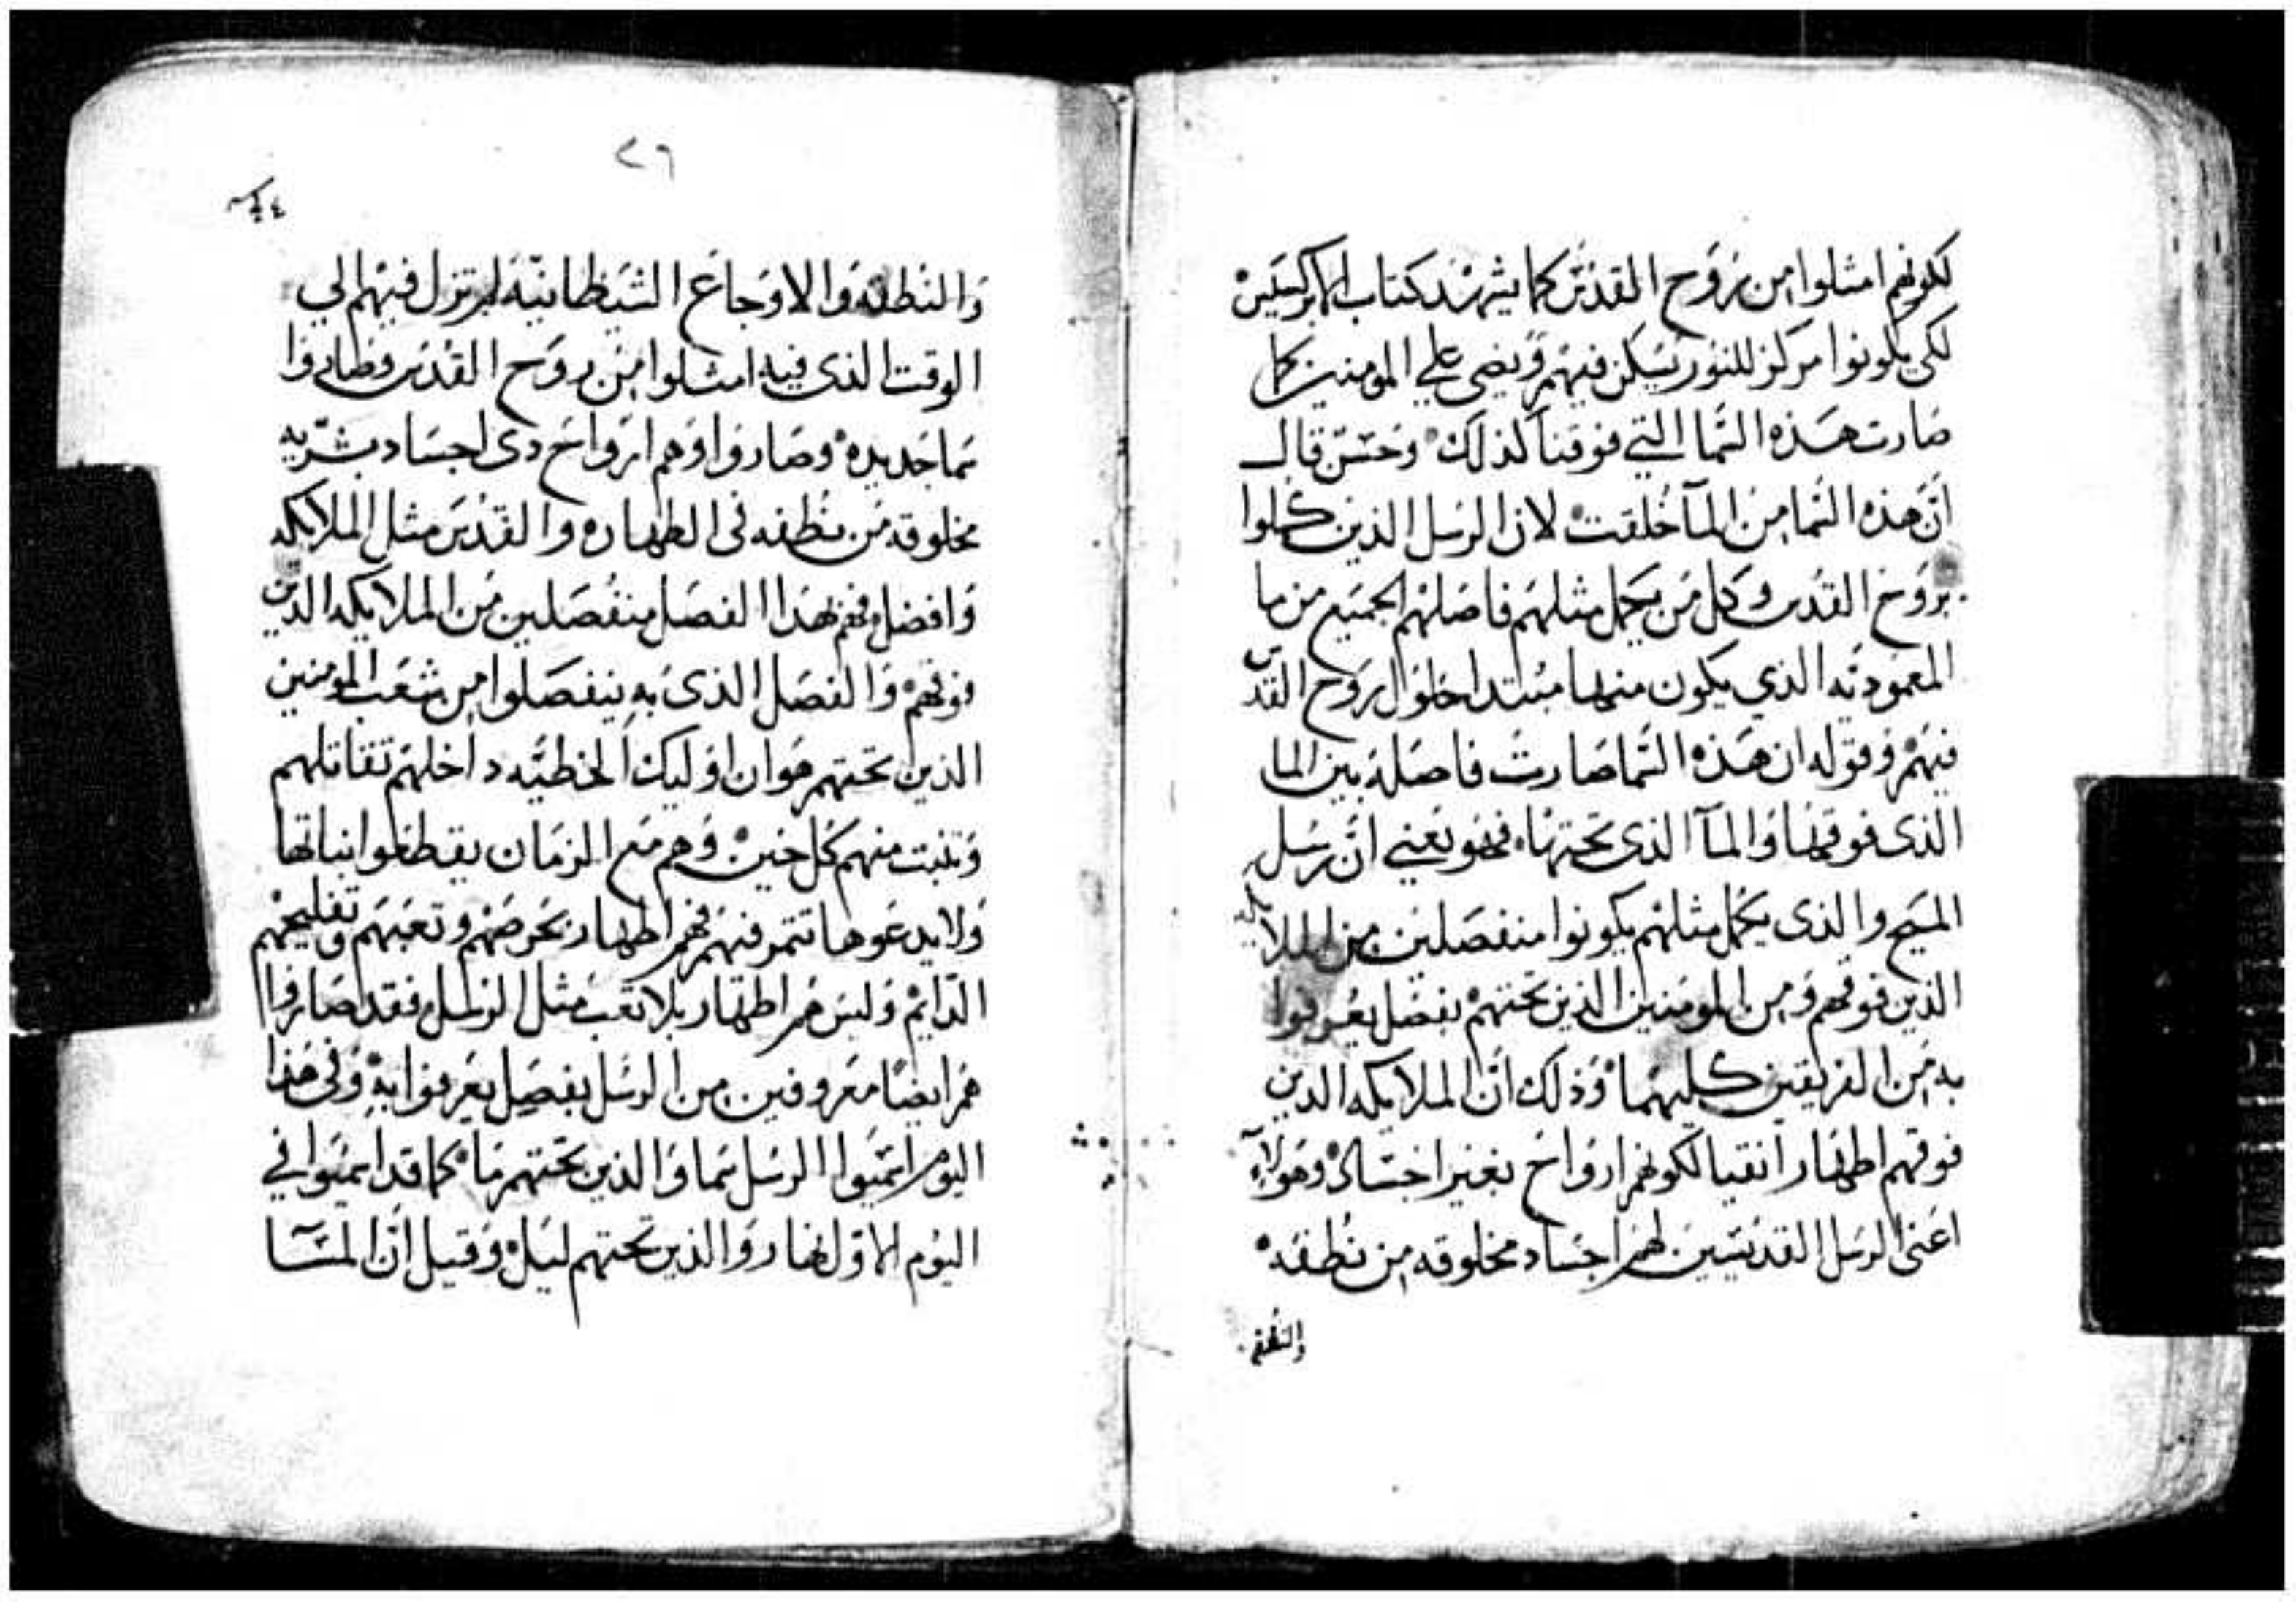 لكونهم امتلوا من روح القدس كما يشهد كتاب الابركسيس
لكي يكونوا مركز للنور تسكن فيهم ويضى على المومنين كما
صارت هذه السما التي فوقنا كذلك وحسن قال
ان هذه السما من المآ خلقت لان الرسل الذين كملوا
بروح القدس وكل من يكمل مثلهم فاصلهم الجميع من ما
المعموديه الذي يكون منها مبتدا حلول روح القدس
فيهم وقوله ان هذه السما صارت فاصله بين الما
الذى فوقها والمآ الذى تحتها فهو يعني ان رسل
المسيح والذى يكمل مثلهم يكونوا منفصلين من الملايكه
الذين فوقهم ومن المومنين الذين تحتهم بفصل يعرفوا
به من الفريقين كليهما وذلك ان الملايكه الدين
فوقهم اطهار انقيا لكونهم ارواح بغير اجساد وهولاء
اعنى الرسل القديسين لهم اجساد مخلوقه من نطفه
والنطفه
٢٦
والنطفه والاوجاع الشيطانيه لم تزل فيهم الي
الوقت الذى فيه امتلوا من روح القدس فصاروا
سما جديده وصاروا وهم ارواح دى اجساد بشريه
مخلوقه من نطفه فى الطهاره والقدس مثل الملايكه
وافضل فهم بهذا الفصل منفصلين من الملايكه الدين
فوقهم والفصل الذى به ينفصلوا من شعب المومنين
الذين تحتهم هو ان اوليك الخطيه داخلهم تقاتلهم
وتنبت منهم كل حين وهم مع الزمان يقطعوا نباتها
ولا يدعوها تتمر فيهم فهم اطهار بحرصهم وتعبهم وتفليحهم
الدايم وليس هم اطهار بلا تعب مثل الرسل فقد صاروا
هم ايضا معروفين من الرسل بفصل يعرفوا به وفى هذا
اليوم اتسميوا الرسل سما والذين تحتهم ما كما قد اتسميوا في
اليوم الاول نهار والذين تحتهم ليل وقيل ان المسآ